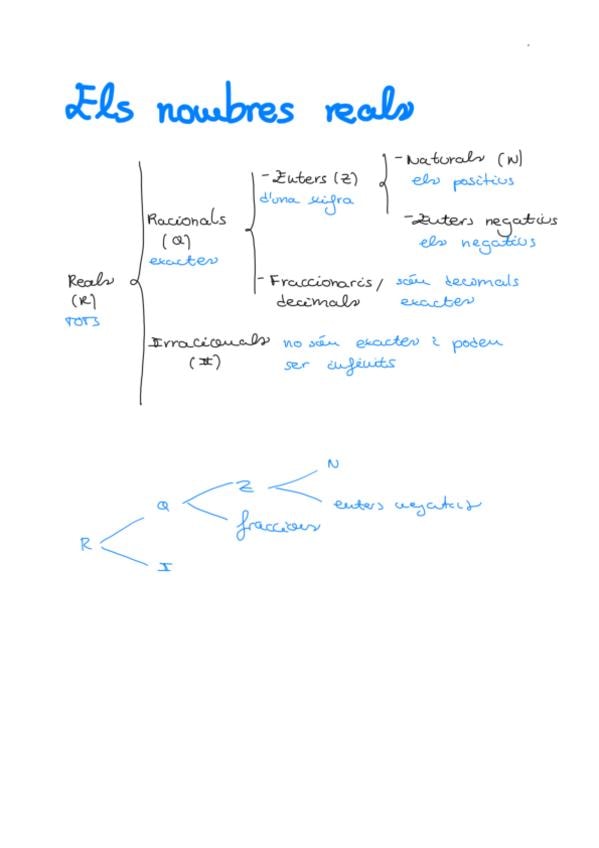 Els nombres reals
- Naturals (N)
- Enters (Z)
els positius
d'una xifra
Racionals
- Enters negatius
(Q)
els negatius
exactes
Reals
- Fraccionaris/ són decimals
(R)
decimals exactes
TOTS
Irracionals no són exactes i poden
(II)
ser infinits
N
Z
Q
enters negatius
fraccions
R
I